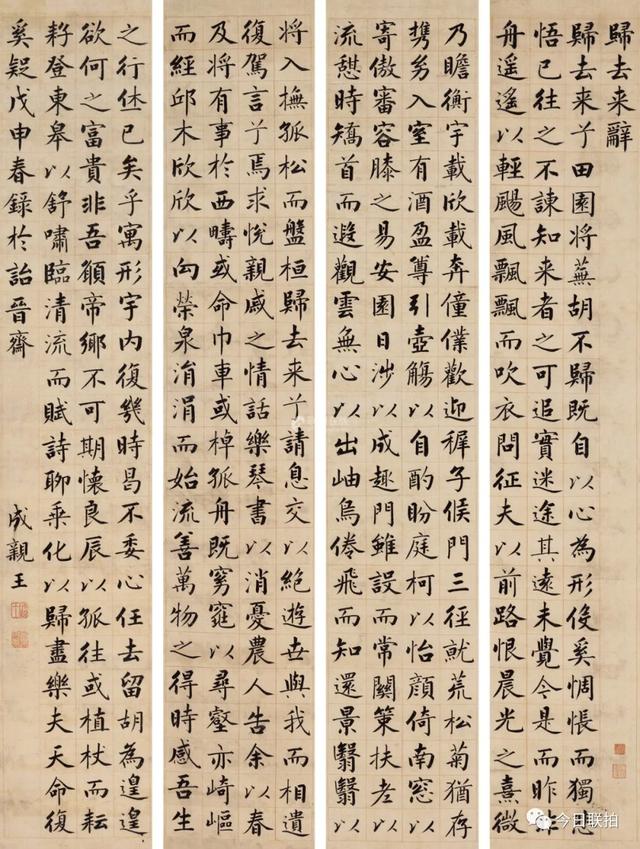 歸去来辭
歸去来兮田園將蕪胡不歸既自以心為形役奚惆悵而獨悲
悟已往之不諫知来者之可追實迷途其遠未覺今是而昨非
舟遥遥以輕颺風飄飄而吹衣問征夫以前路恨晨光之熹微
乃瞻衡宇載欣載奔僮僕歡迎稺子候門三徑就荒松菊猶存
携幼入室有酒盈罇引壺觴以自酌盼庭柯以怡顏倚南窓以
寄傲審容膝之易安園日涉以成趣門雖設而常關策扶老以
流憇時矯首而遐觀雲無心以出岫鳥倦飛而知還景翳翳以
將入撫孤松而盤桓歸去来兮請息交以絕遊世與我而相遺
復駕言兮焉求悅親戚之情話樂琴書以消憂農人告余以春
及將有事於西疇或命巾車或棹孤舟既窈窕以尋壑亦崎嶇
而經邱木欣欣以向榮泉涓涓而始流善萬物之得時感吾生
之行休已矣乎寓形宇内復幾時曷不委心任去留胡為遑遑
欲何之富貴非吾願帝鄉不可期懷良辰以孤往或植杖而耘
耔登東皋以舒嘯臨清流而賦詩聊乘化以歸盡樂夫天命復
奚疑戊申春錄於詒晉齋
成親王
今日联拍